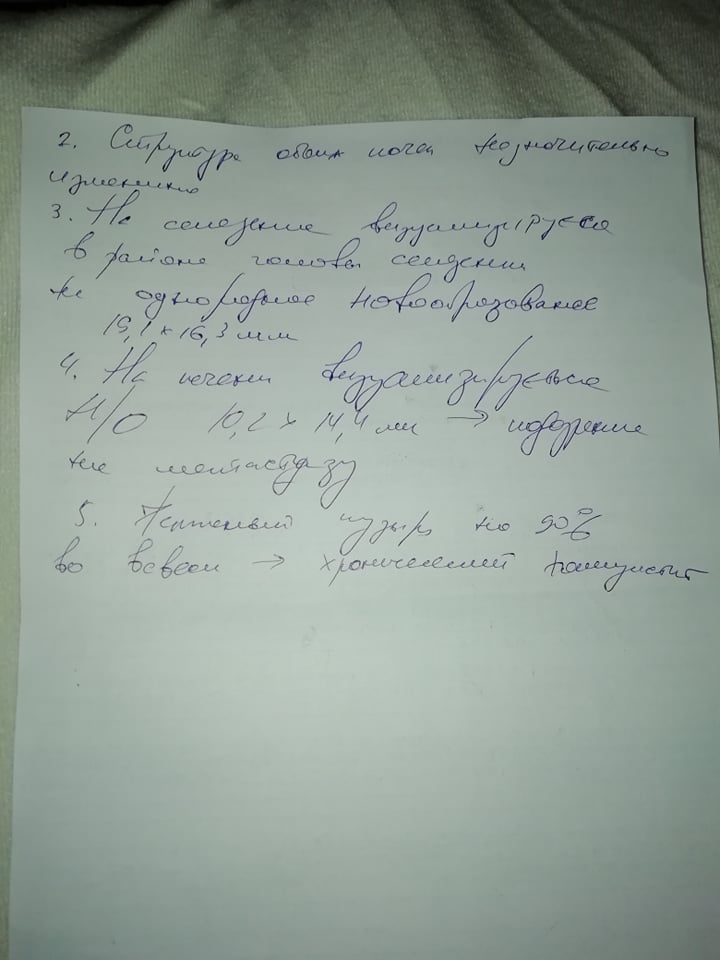 2. Структура обеих почек незначительно
изменена
3. На селезенке визуализируется
в районе головы селезенки
не однородное новообразование
19,1 x 16,3 мм
4. На печени визуализируется
Н/О 10,2 x 14,4 мм → подозрение
на метастазу
5. Желчный пузырь на 50%
во взвеси → хронический